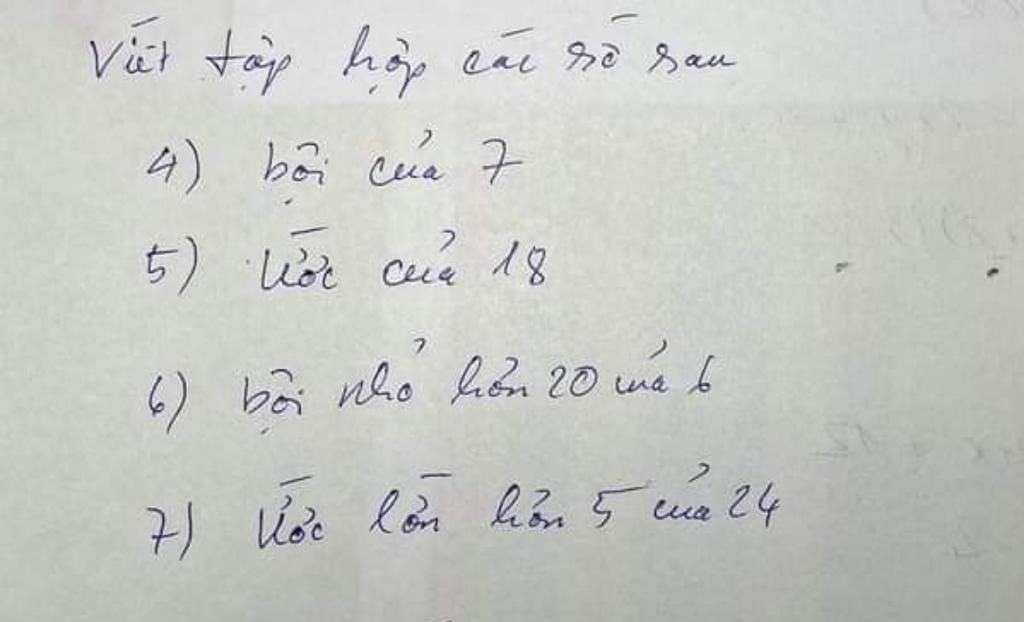 Viết tập hợp các số sau
4) bội của 7
5) Ước của 18
6) bội nhỏ hơn 20 của 6
7) Ước lớn hơn 5 của 24